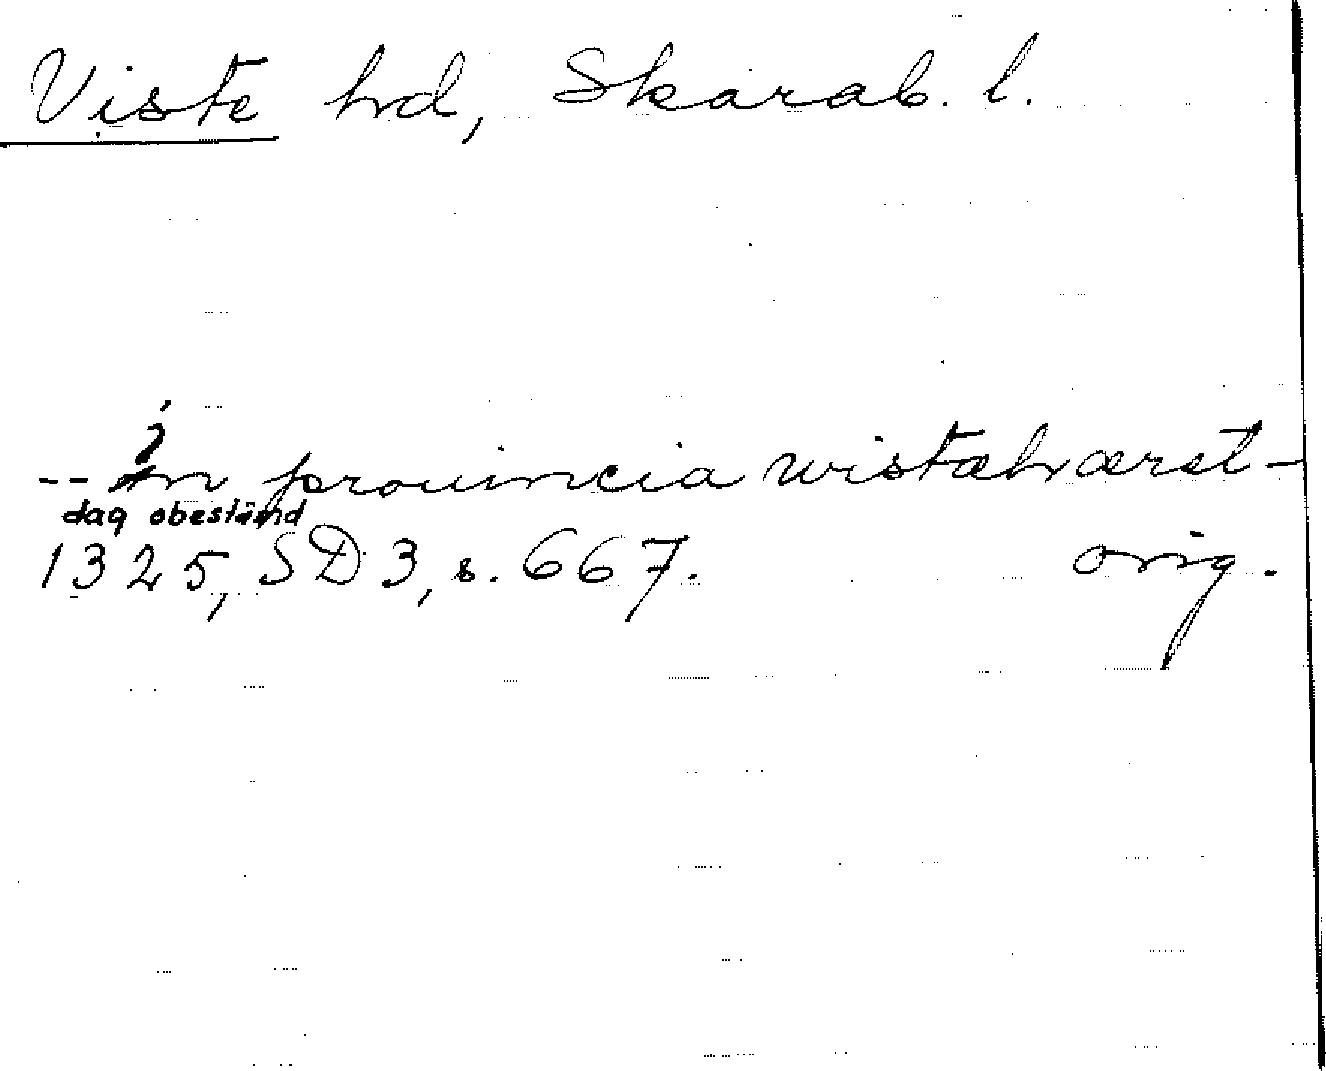 Viste hd, Skarab. l.
-- in prouincia wistæhæræt -
dag obestämd
1325, SD 3, s. 667. orig.